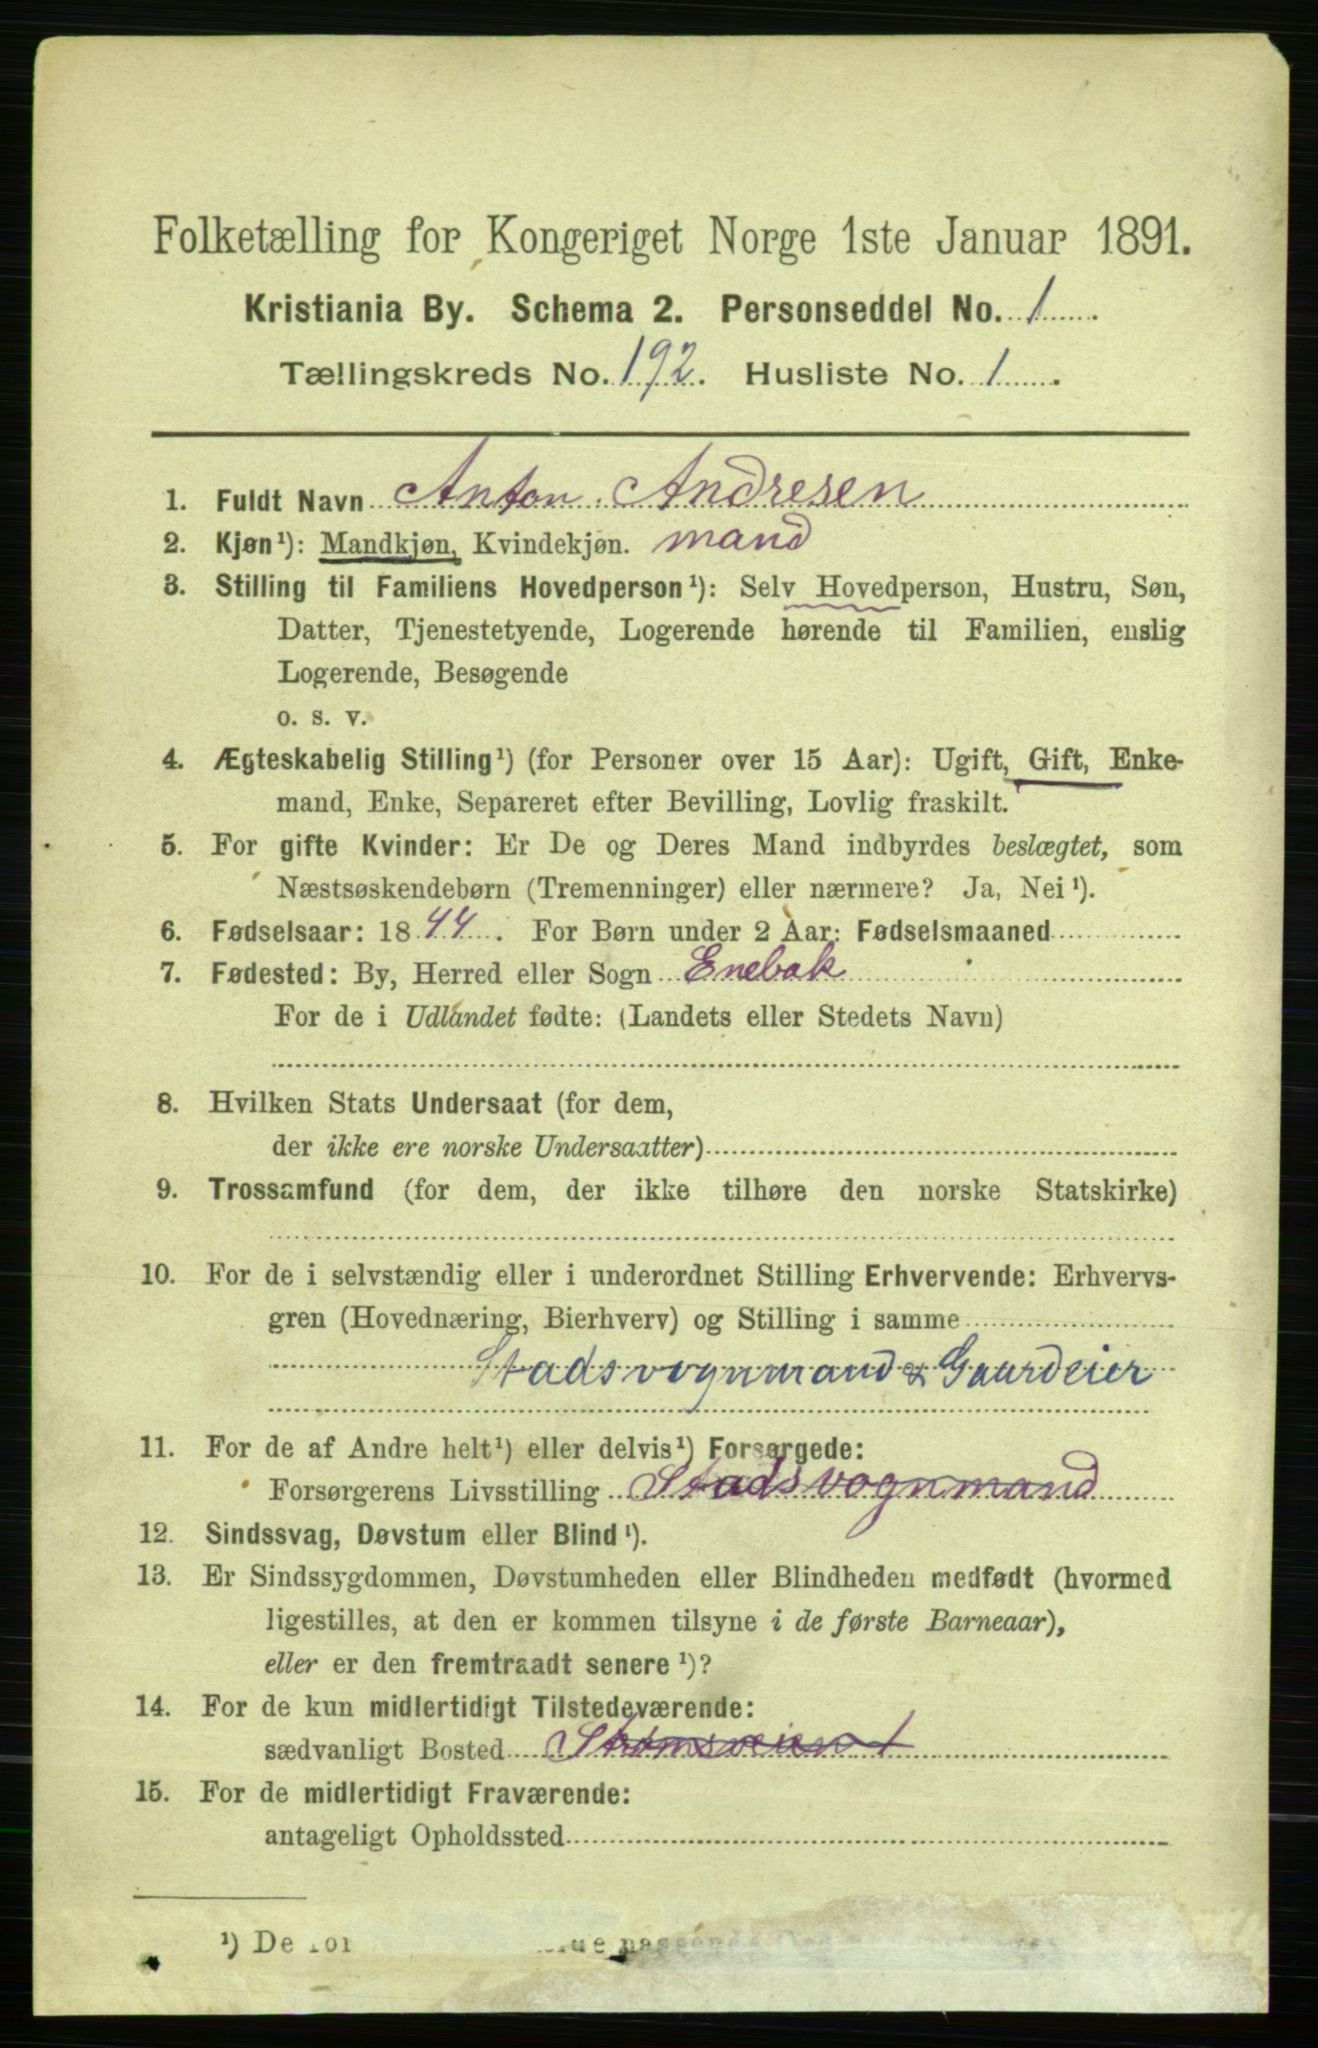 Folketælling for Kongeriget Norge 1ste Januar 1891.
Kristiania By. Schema 2. Personseddel No. 1
Tællingskreds No. 192. Husliste No. 1.
1. Fuldt Navn Anton Andresen
2. Kjøn¹): Mandkjøn, Kvindekjøn. mand
3. Stilling til Familiens Hovedperson¹): Selv Hovedperson, Hustru, Søn,
Datter, Tjenestetyende, Logerende hørende til Familien, enslig
Logerende, Besøgende
o. s. v.
4. Ægteskabelig Stilling¹) (for Personer over 15 Aar): Ugift, Gift, Enke-
mand, Enke, Separeret efter Bevilling, Lovlig fraskilt.
5. For gifte Kvinder: Er De og Deres Mand indbyrdes beslægtet, som
Næstsøskendebørn (Tremenninger) eller nærmere? Ja, Nei¹).
6. Fødselsaar: 1844. For Børn under 2 Aar: Fødselsmaaned
7. Fødested: By, Herred eller Sogn Enebak
For de i Udlandet fødte: (Landets eller Stedets Navn)
8. Hvilken Stats Undersaat (for dem,
der ikke ere norske Undersaatter)
9. Trossamfund (for dem, der ikke tilhøre den norske Statskirke)
10. For de i selvstændig eller i underordnet Stilling Erhvervende: Erhvervs-
gren (Hovednæring, Bierhverv) og Stilling i samme
Stadsvognmand & Gaardeier
11. For de af Andre helt¹) eller delvis¹) Forsørgede:
Forsørgerens Livsstilling Stadsvognmand
12. Sindssvag, Døvstum eller Blind¹).
13. Er Sindssygdommen, Døvstumheden eller Blindheden medfødt (hvormed
ligestilles, at den er kommen tilsyne i de første Barneaar),
eller er den fremtraadt senere¹)?
14. For de kun midlertidigt Tilstedeværende:
sædvanligt Bosted Strømsveien 1
15. For de midlertidigt Fraværende:
antageligt Opholdssted
¹) De for